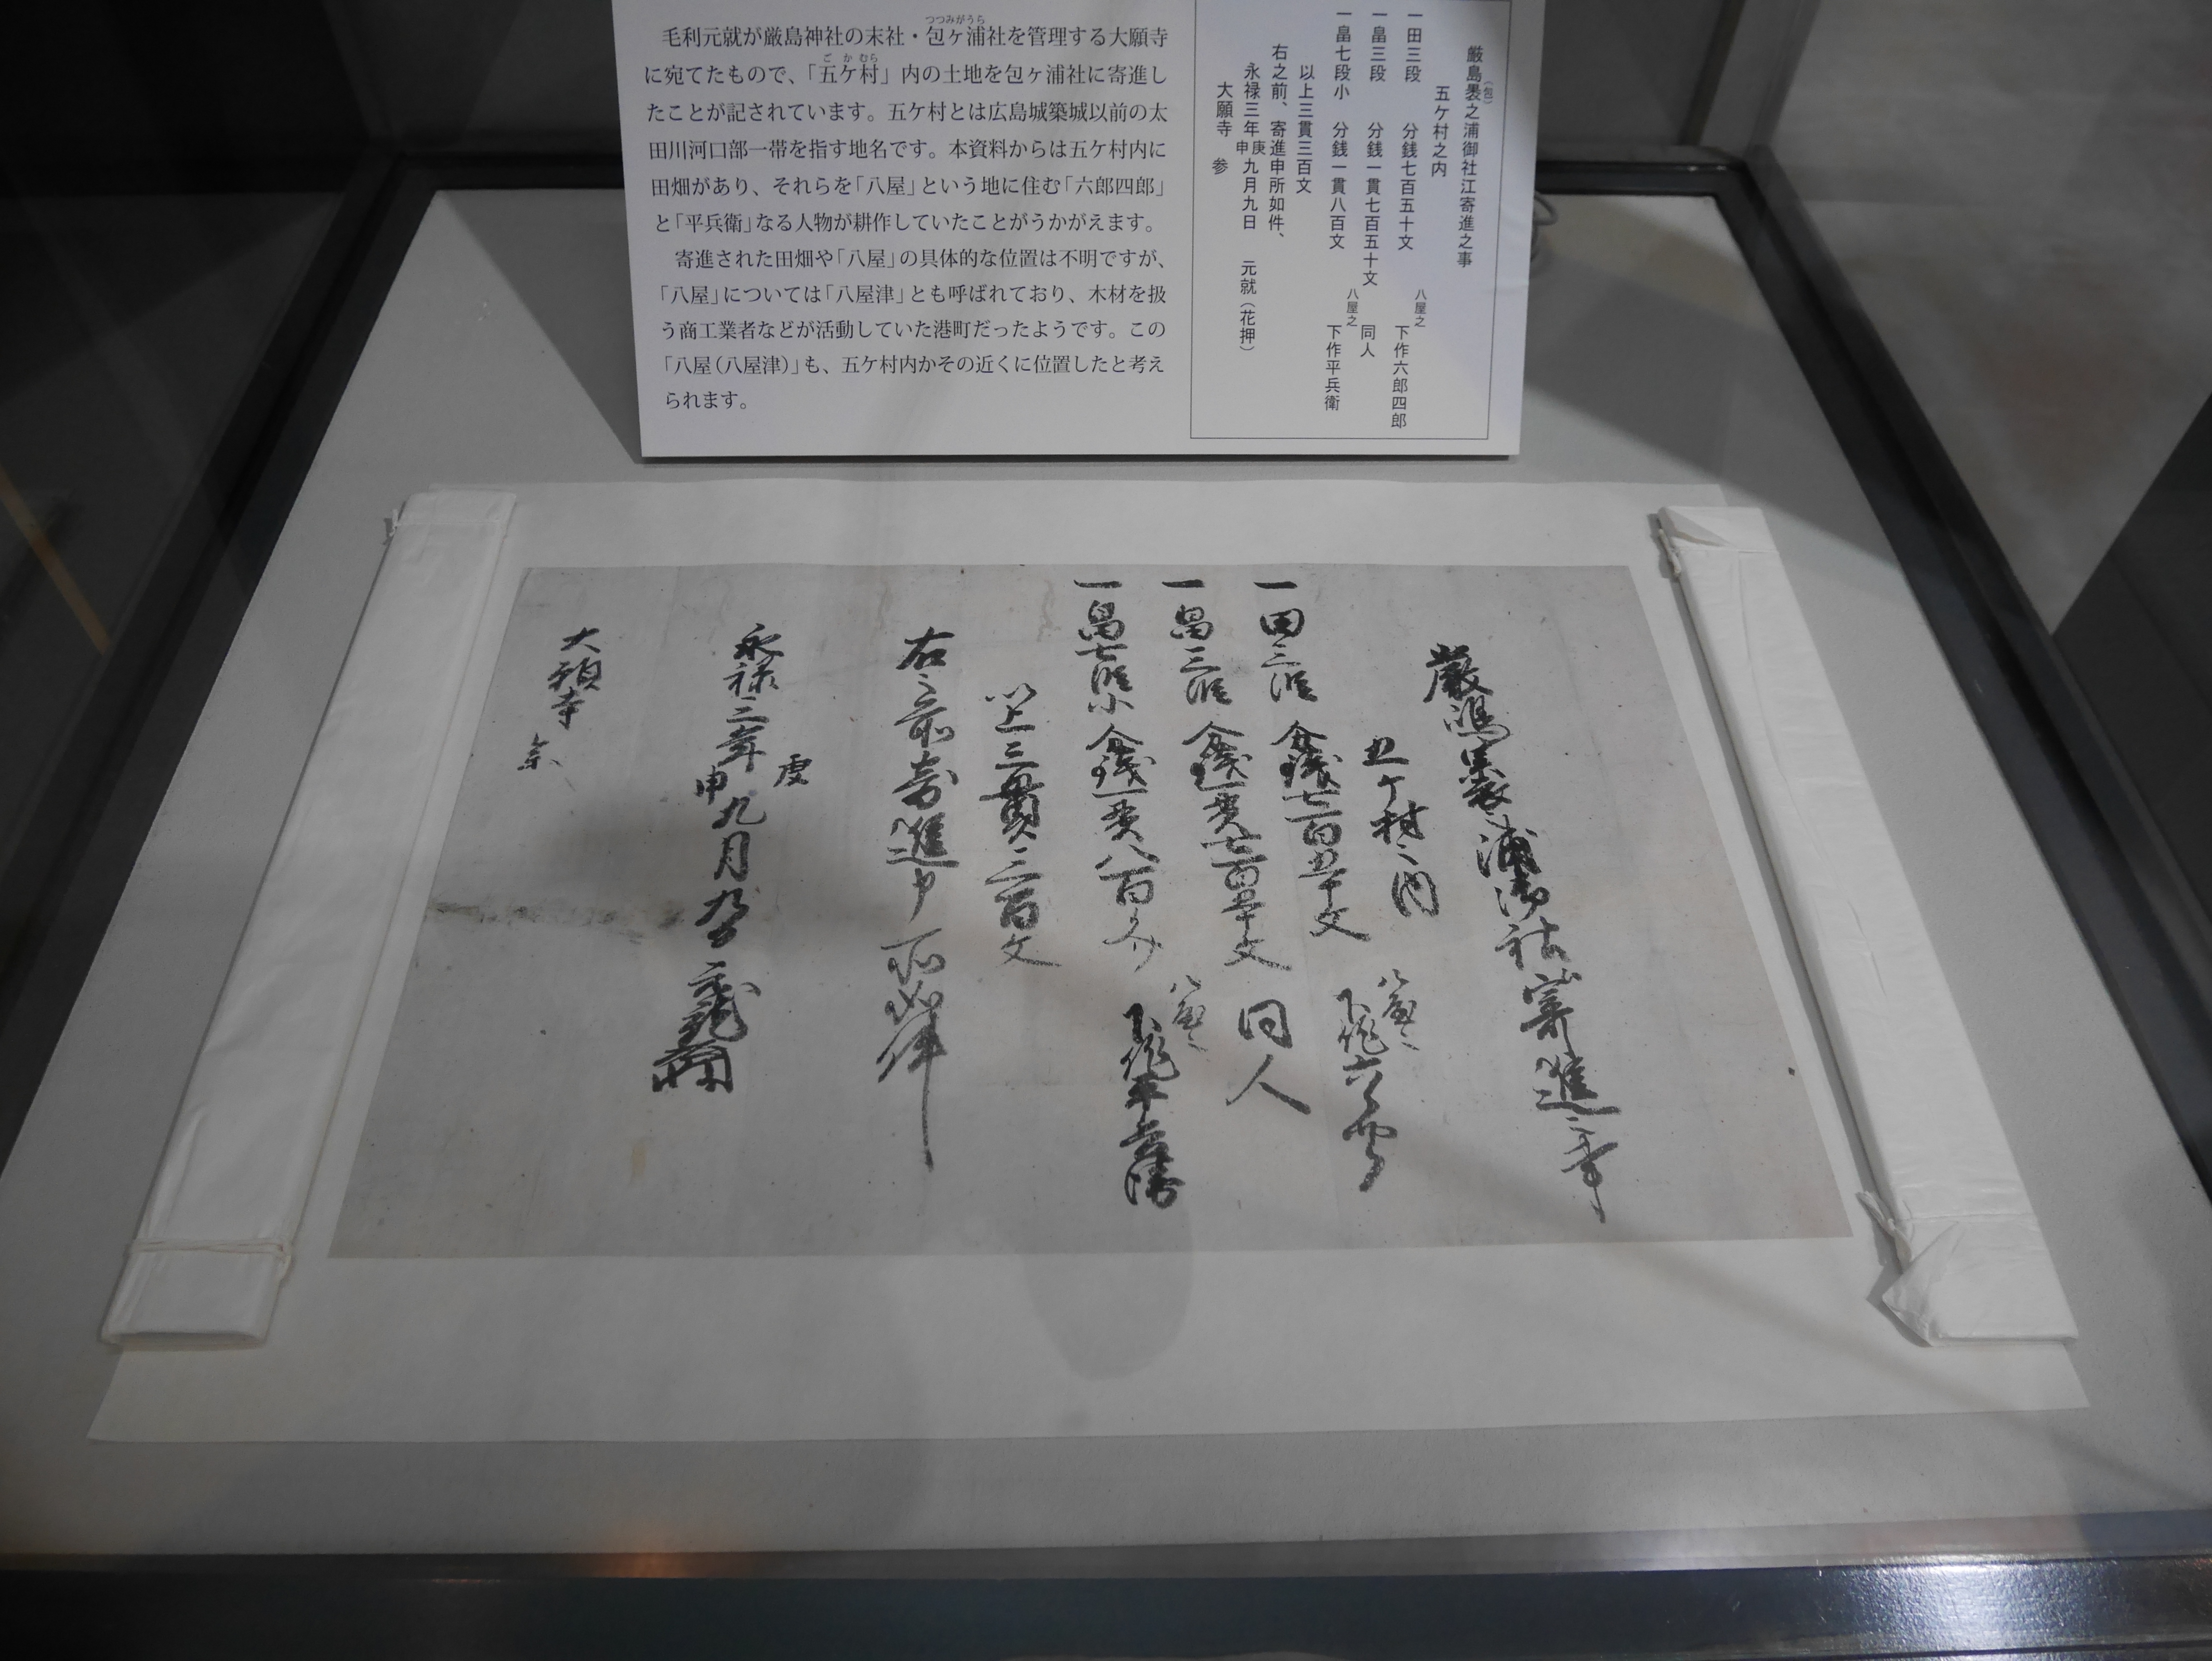 毛利元就が厳島神社の末社・包ヶ浦社を管理する大願寺
つつみがうら
に宛てたもので、「五ケ村」内の土地を包ヶ浦社に寄進し
ごかむら
たことが記されています。五ケ村とは広島城築城以前の太
田川河口部一帯を指す地名です。本資料からは五ケ村内に
田畑があり、それらを「八屋」という地に住む「六郎四郎」
と「平兵衛」なる人物が耕作していたことがうかがえます。
寄進された田畑や「八屋」の具体的な位置は不明ですが、
「八屋」については「八屋津」とも呼ばれており、木材を扱
う商工業者などが活動していた港町だったようです。この
「八屋(八屋津)」も、五ケ村内かその近くに位置したと考え
られます。
厳島褁之浦御社江寄進之事
(包)
五ケ村之内
一田三段 分銭七百五十文 八屋之下作六郎四郎
一畠三段 分銭一貫七百五十文 同人
一畠七段小 分銭一貫八百文 八屋之下作平兵衛
以上三貫三百文
右之前、寄進申所如件、
永禄三年庚申九月九日 元就(花押)
大願寺 参
厳嶋褁之浦御社寄進之事
五ケ村之内
一田三段 分銭七百五十文 八屋之下作六郎四郎
一畠三段 分銭一貫七百五十文 同人
一畠七段小 分銭一貫八百文 八屋之下作平兵衛
以上三貫三百文
右之前寄進申所如件
永禄三年庚申九月九日 元就
大願寺 参